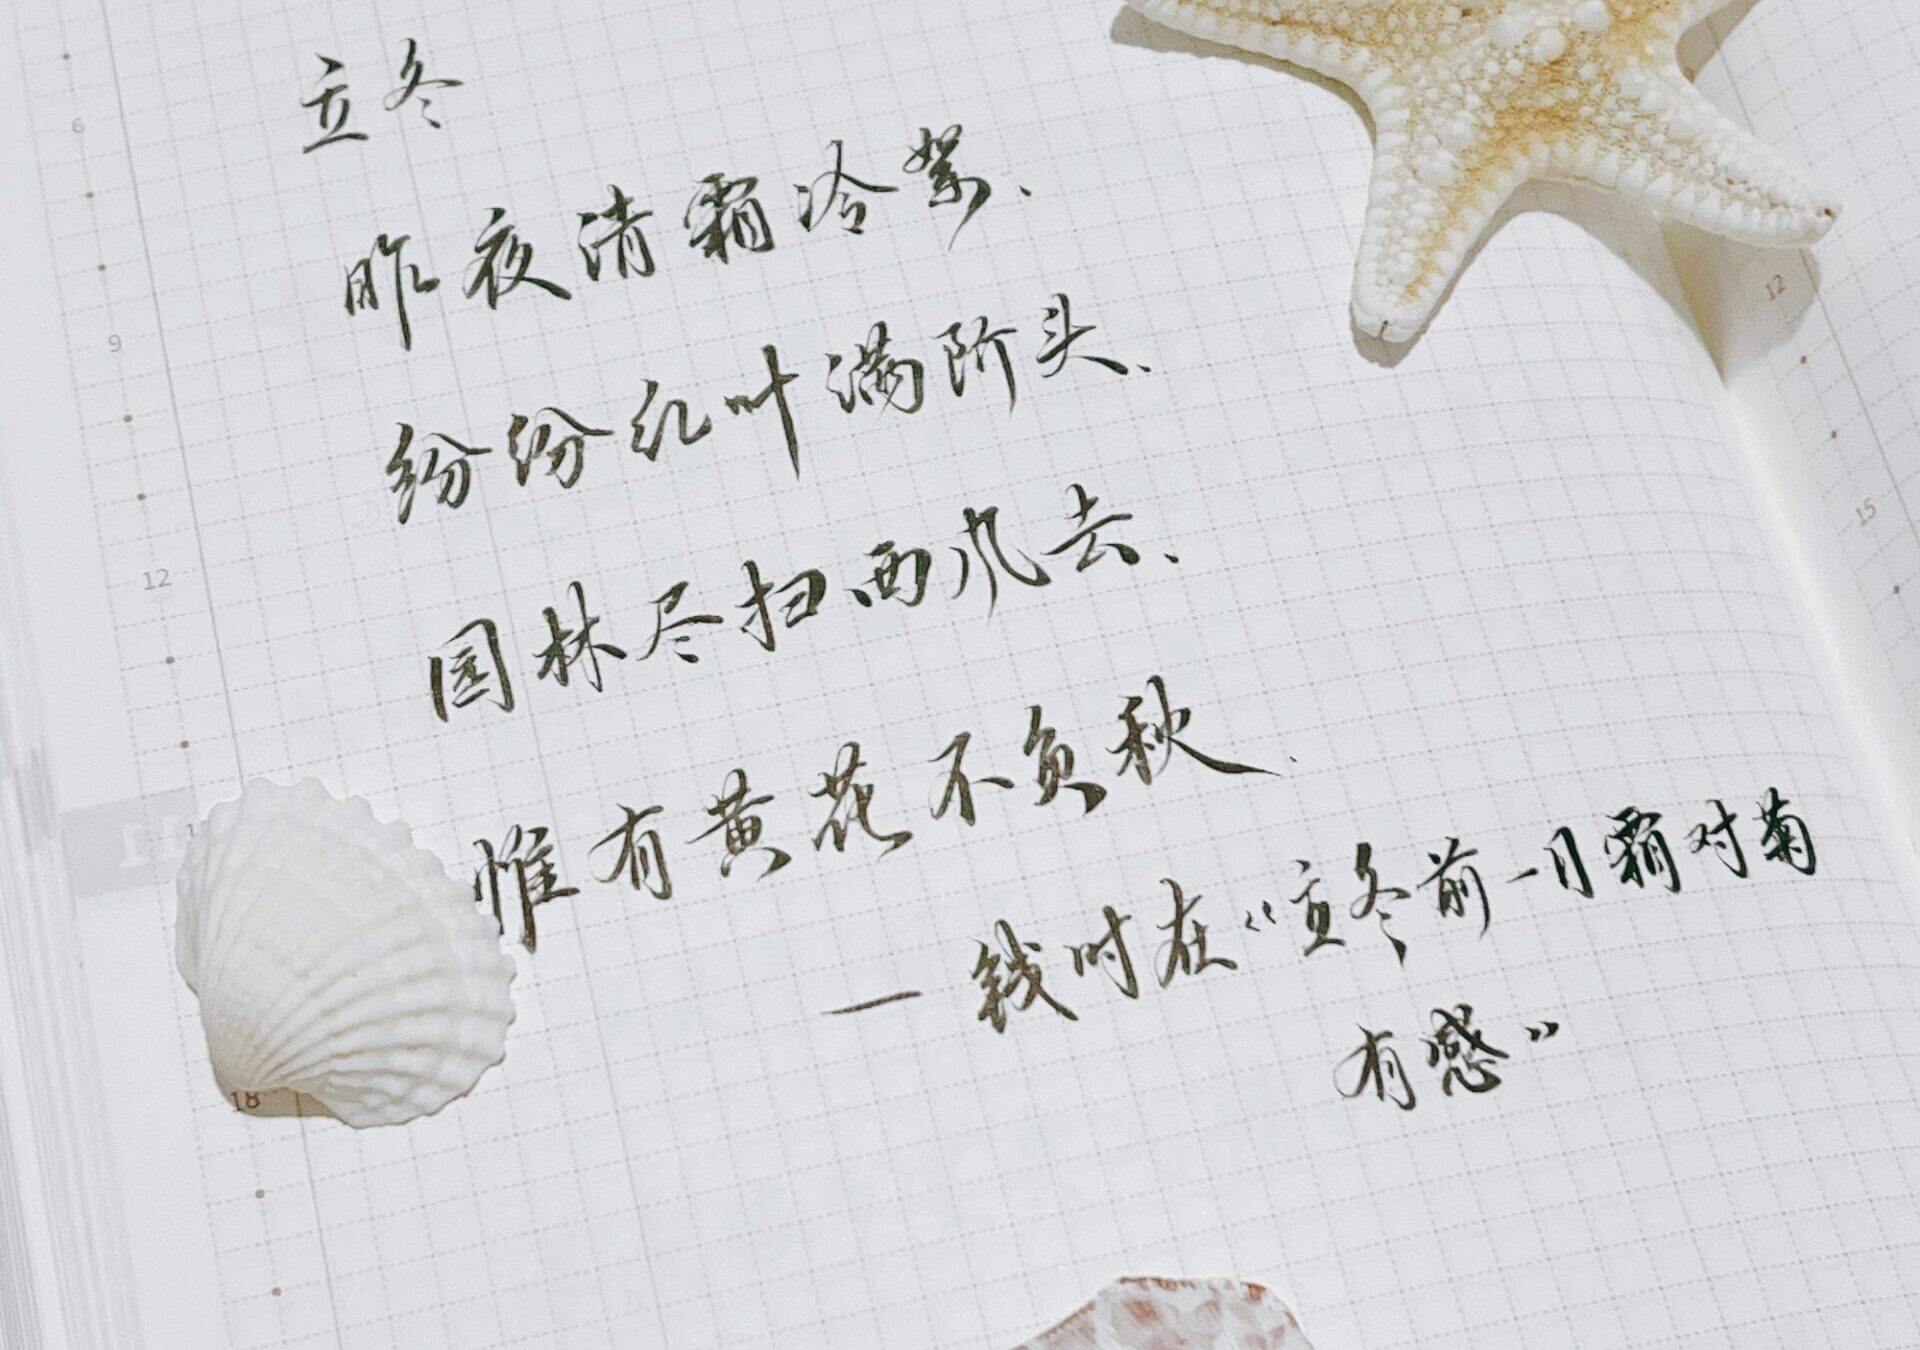 立冬
昨夜清霜冷絮、
纷纷红叶满阶头、
园林尽扫西风去、
惟有黄花不负秋、
— 钱时在“立冬前一日霜对菊
有感”
6
9
12
11
18
12
15